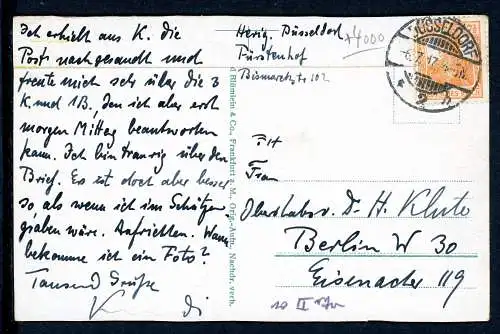 Ich erhielt aus K. die
Post nachgesandt und
freute mich sehr über die 3
K. und 1B, den ich aber erst
morgen Mittag beantworten
kann. Ich bin traurig über den
Brief. Es ist doch aber besser
so als wenn ich im Schützen
graben wäre. Aufrichten. Wann
bekomme ich ein Foto?
Tausend Grüße
Herzg. Düsseldorf
Fürstenhof
Bismarckstr 102
+4000
DÜSSELDORF
2
Römlein & Co., Frankfurt a. M., Orig.-Aufn. Nachdr. verb.
Frau
Oberstabsv. Dr. H. Klute
Berlin W 30
Eisenacher 119